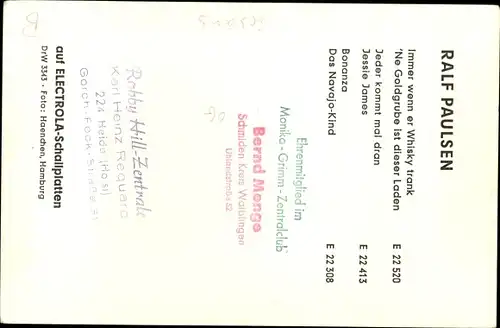 RALF PAULSEN
Immer wenn er Whisky trank
'Ne Goldgrube ist dieser Laden E 22 520
Jeder kommt mal dran
Jessie James E 22 413
Bonanza
Das Navajo-Kind E 22 308
Ehrenmitglied im
Monika-Grimm-Zentralclub
Bernd Menge
Schmiden Kreis Waiblingen
Uhlandstraße 62
Robby Hill-Zentrale
Karl Heinz Requard
224 Heide (Holst)
Gorch-Fock-Straße 31
auf ELECTROLA-Schallplatten
DrW 3343 • Foto: Haenchen, Hamburg